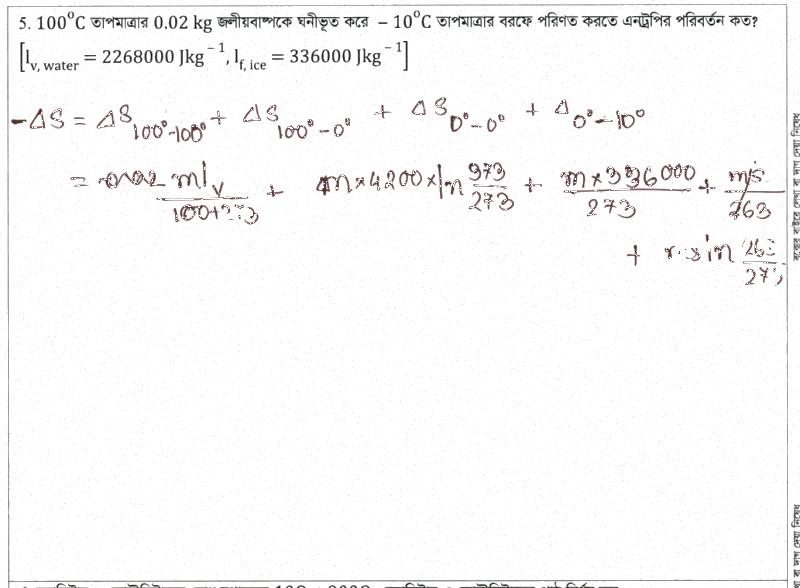 5. 100⁰C তাপমাত্রার 0.02 kg জলীয়বাষ্পকে ঘনীভূত করে – 10⁰C তাপমাত্রার বরফে পরিণত করতে এনট্রপির পরিবর্তন কত?
[l_v, water = 2268000 Jkg⁻¹, l_f, ice = 336000 Jkg⁻¹]
-ΔS = ΔS 100°-100° + ΔS 100°-0° + ΔS 0°-0° + Δ 0°-10°
= ml_v / 100+273 + m×4200×ln 373/273 + m×336000 / 273 + / 263
+ ln 263/273